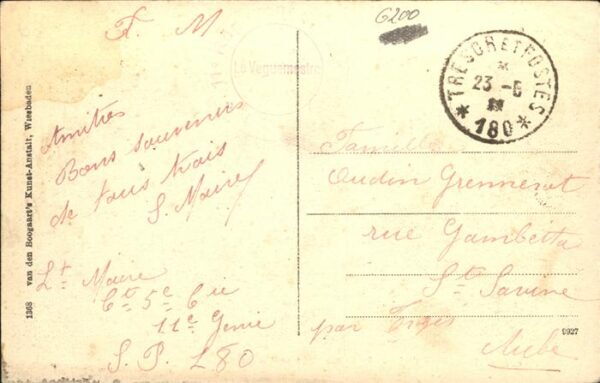 F. M.
6200
Le Vaguemestre
TRESOR ET POSTES
23 - 6
* 180 *
Amitiés
Bons souvenirs
de tous trois
S. Maire
Lt Maire
Ct 5e Cie
11e Génie
S. P. 180
Famille
Oudin Grennerat
rue Gambetta
Ste Savine
par Troyes
Aube
1368 van den Boogaart's Kunst-Anstalt, Wiesbaden
9927